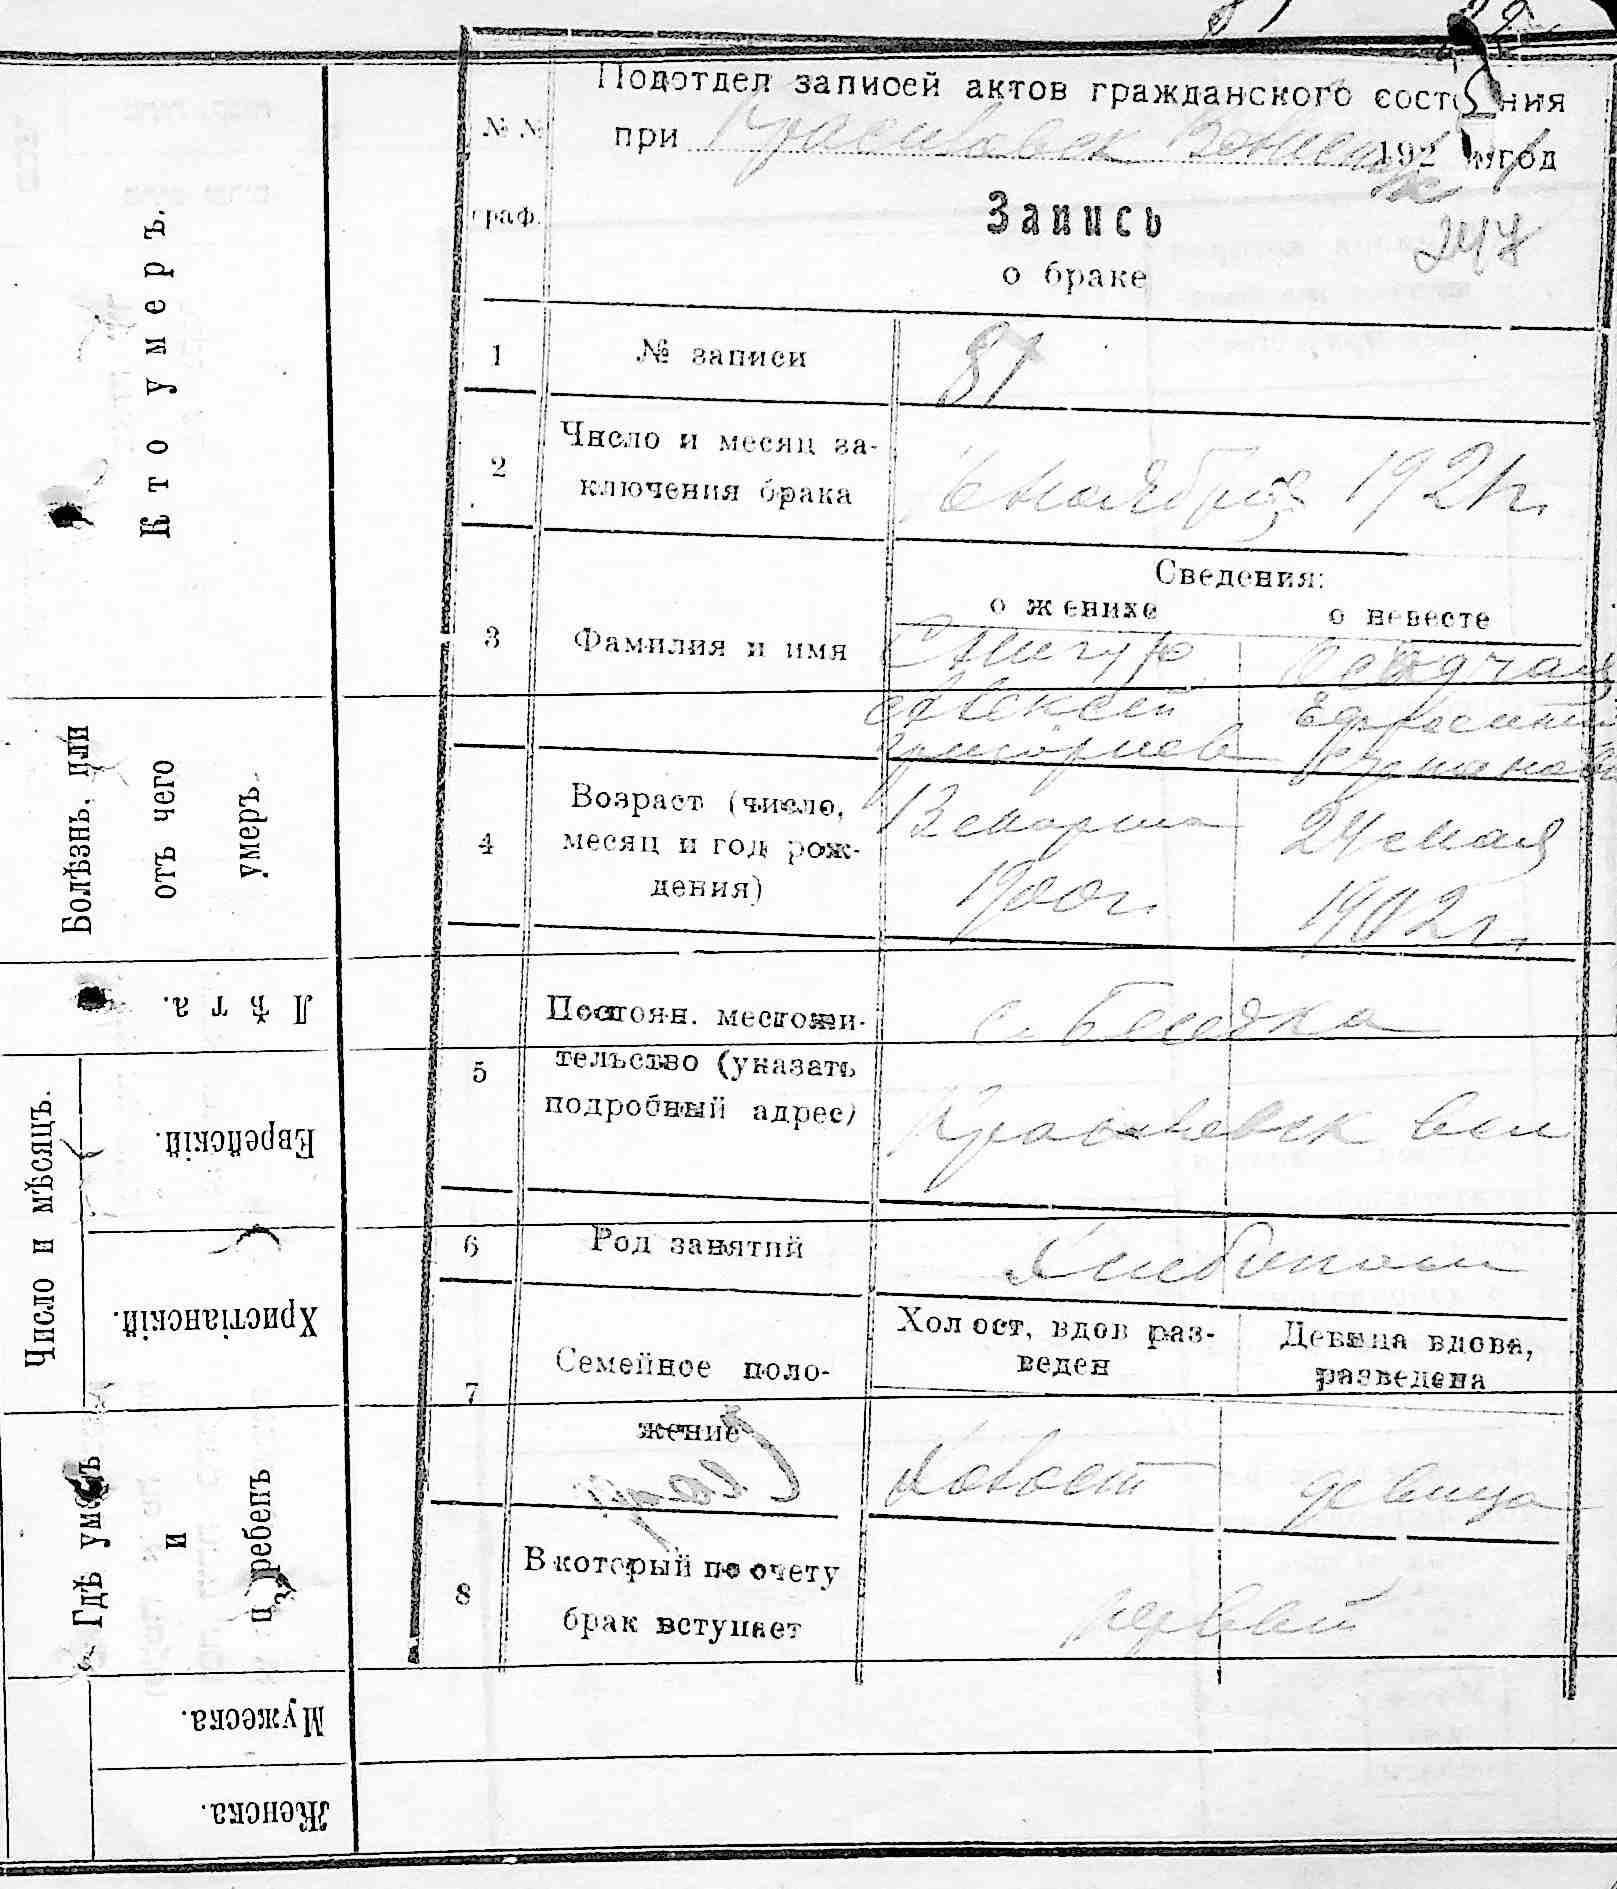 Подотдел записей актов гражданского состояния
№ № при 192 год
граф.
Запись
247
о браке
1 № записи 81
2 Число и месяц за-
ключения брака ноября 1921 г.
Сведения:
о женихе о невесте
3 Фамилия и имя Снигур
Алексей Ефросиния
Григориев
4 Возраст (число,
месяц и год рож-
дения)
13 марта 24 мая
1900 г. 1902 г.
5 Постоян. местожи-
тельство (указать
подробный адрес)
с. Беседка
вол
6 Род занятий Хлебопаш
7 Семейное поло-
жение
Холост, вдов раз-
веден
Девица вдова,
разведена
Холост девица
8 В который по счету
брак вступает первый
Кто умеръ.
Болѣзнь, или
отъ чего
умеръ.
Лѣта.
Число и мѣсяцъ.
Еврейскій.
Христіанскій.
Гдѣ умеръ
и
погребенъ
Мужеска.
Женска.